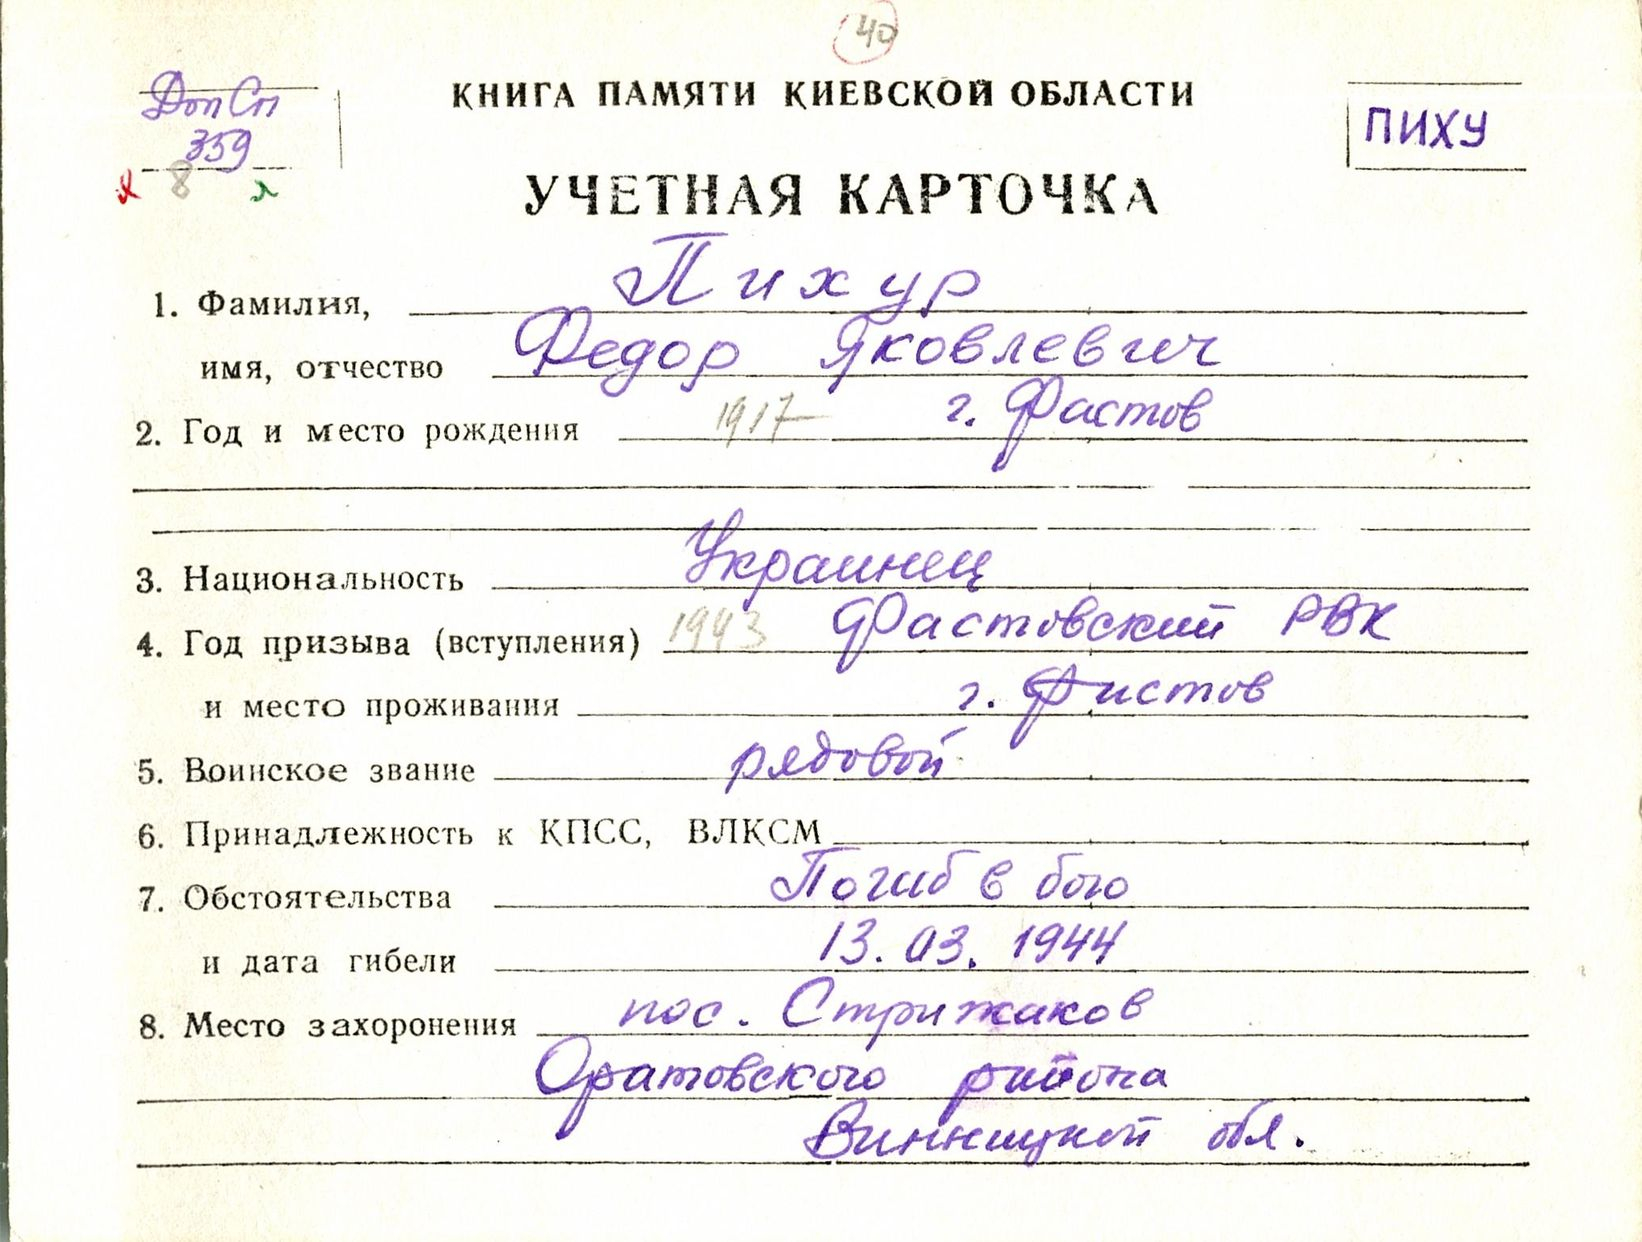 40
Доп Сп
359
8
КНИГА ПАМЯТИ КИЕВСКОЙ ОБЛАСТИ
ПИХУ
УЧЕТНАЯ КАРТОЧКА
1. Фамилия, Пихур
имя, отчество Федор Яковлевич
2. Год и место рождения 1917 г. Фастов
3. Национальность Украинец
4. Год призыва (вступления) 1943 Фастовский РВК
и место проживания г. Фастов
5. Воинское звание рядовой
6. Принадлежность к КПСС, ВЛКСМ
7. Обстоятельства Погиб в бою
и дата гибели 13.03.1944
8. Место захоронения пос. Стрижаков
Оратовского района
Винницкой обл.